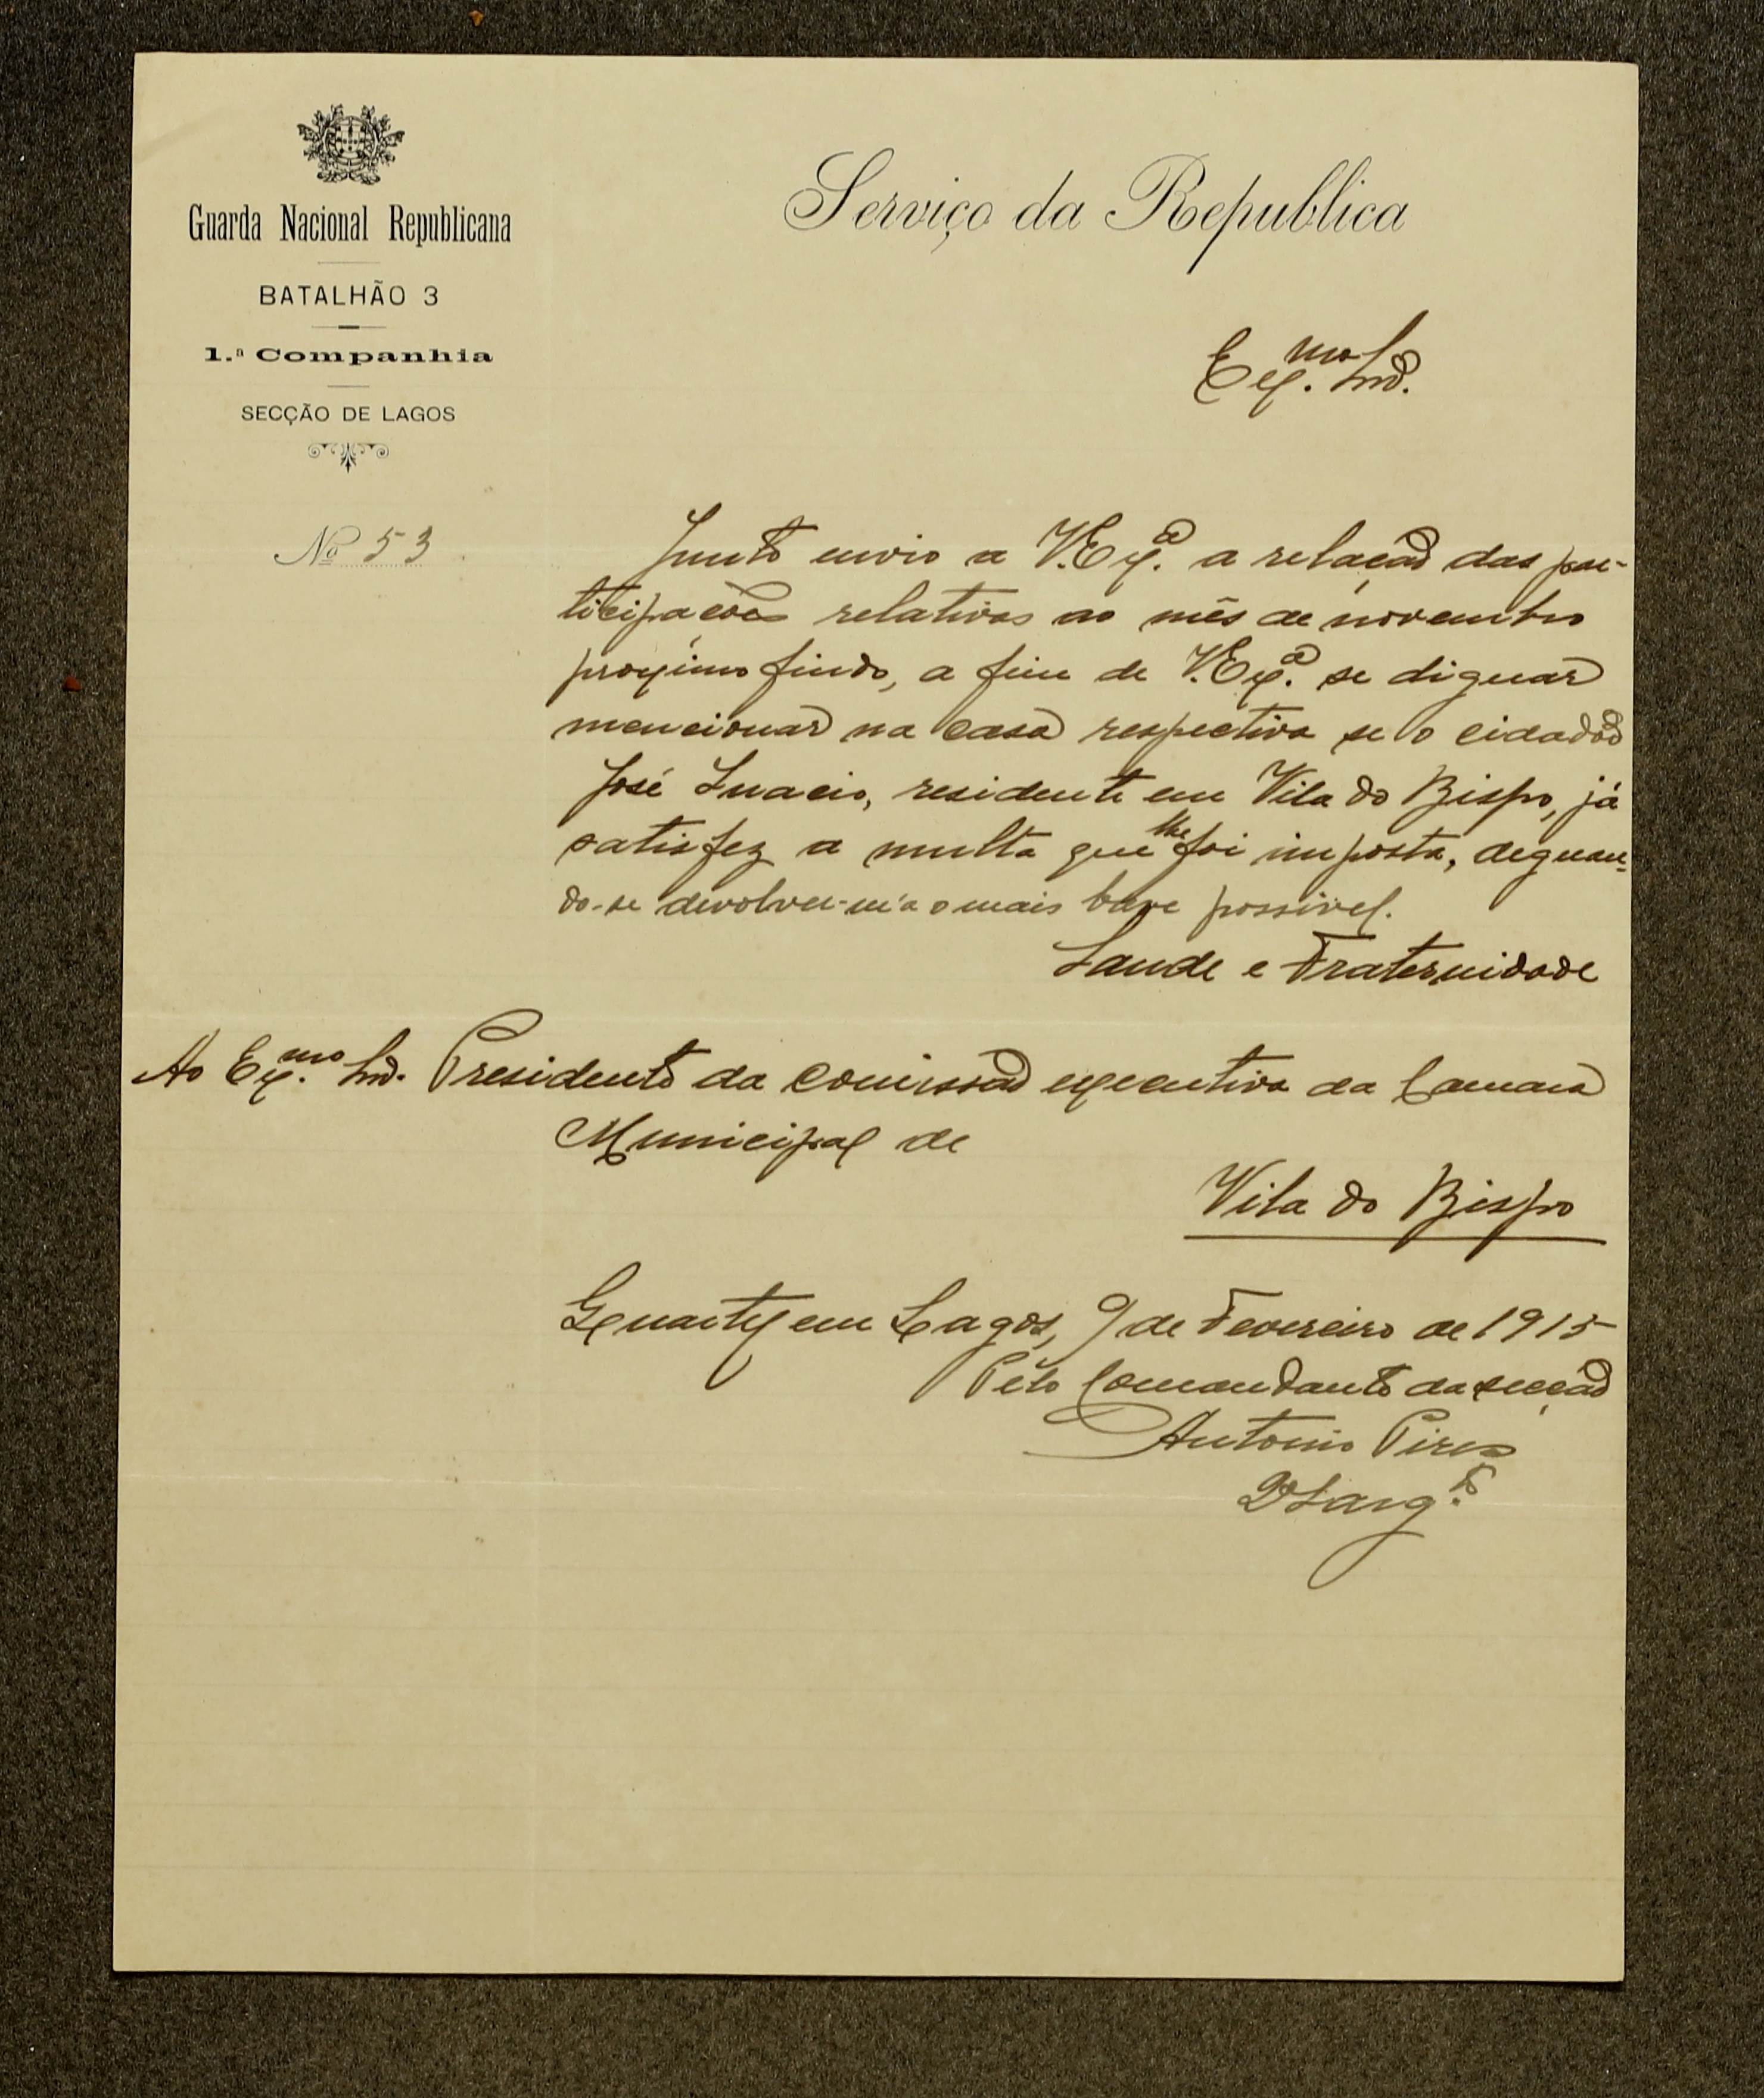 Guarda Nacional Republicana
BATALHÃO 3
1.ª Companhia
SECÇÃO DE LAGOS
Nº 53
Serviço da Republica
Exmo. Snr.
Junto envio a V. Exª. a relação das par-
ticipações relativas ao mês de novembro
proximo findo, a fim de V. Exª. se dignar
mencionar na casa respectiva se o cidadão
José Inacio, residente em Vila do Bispo, já
satisfez a multa que lhe foi imposta, degnan-
do-se devolver-m'a o mais breve possivel.
Saude e Fraternidade
Ao Exmo. Snr. Presidente da comissão executiva da Camara
Municipal de
Vila do Bispo
Quartel em Lagos, 9 de Fevereiro de 1915
Pelo Comandante da secção
Antonio Pires
2º Sargto.